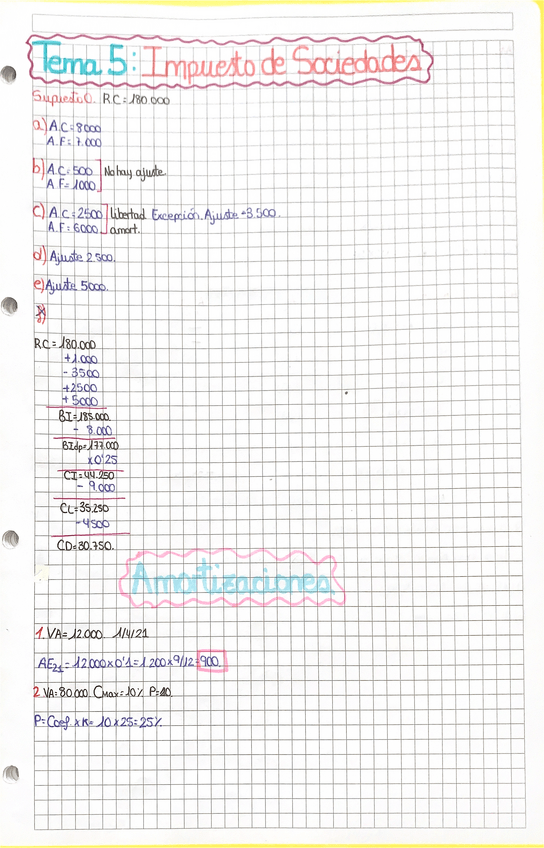 Tema 5: Impuesto de Sociedades
Supuesto 0. RC=180.000
a) A.C=8000
A.F=7.000
b) A.C=500
A.F=1000
No hay ajuste
c) A.C=2500
A.F=6000
libertad
amort.
Excepción. Ajuste -3.500.
d) Ajuste 2.500.
e) Ajuste 5000.
RC=180.000
+1.000
-3500
+2500
+5000
BI=185.000
- 8.000
BIdp=177.000
x0'25
CI=44.250
- 9.000
CL=35.250
-4500
CD=30.750.
Amortizaciones
1. VA=12.000. 1/4/21
AE21=12.000x0'1=1.200x9/12=900.
2 VA=80.000. Cmax=10% P=10.
P=Coef xK=10x25=25%